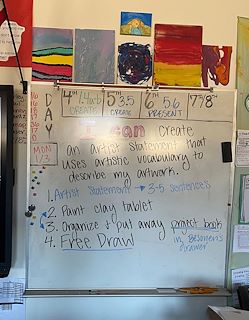 4th 1.4a.b
CREATE
5th 3.5
CREATE
6th 5.6
PRESENT
7th 5/8th
D
A
Y
MON
1/3
I can create
an artist statement that
uses artistic vocabulary to
describe my artwork.
1. Artist Statement → 3-5 sentences
2. Paint clay tablet
3. Organize + put away project book
in Besonen's
drawer
4. Free Draw